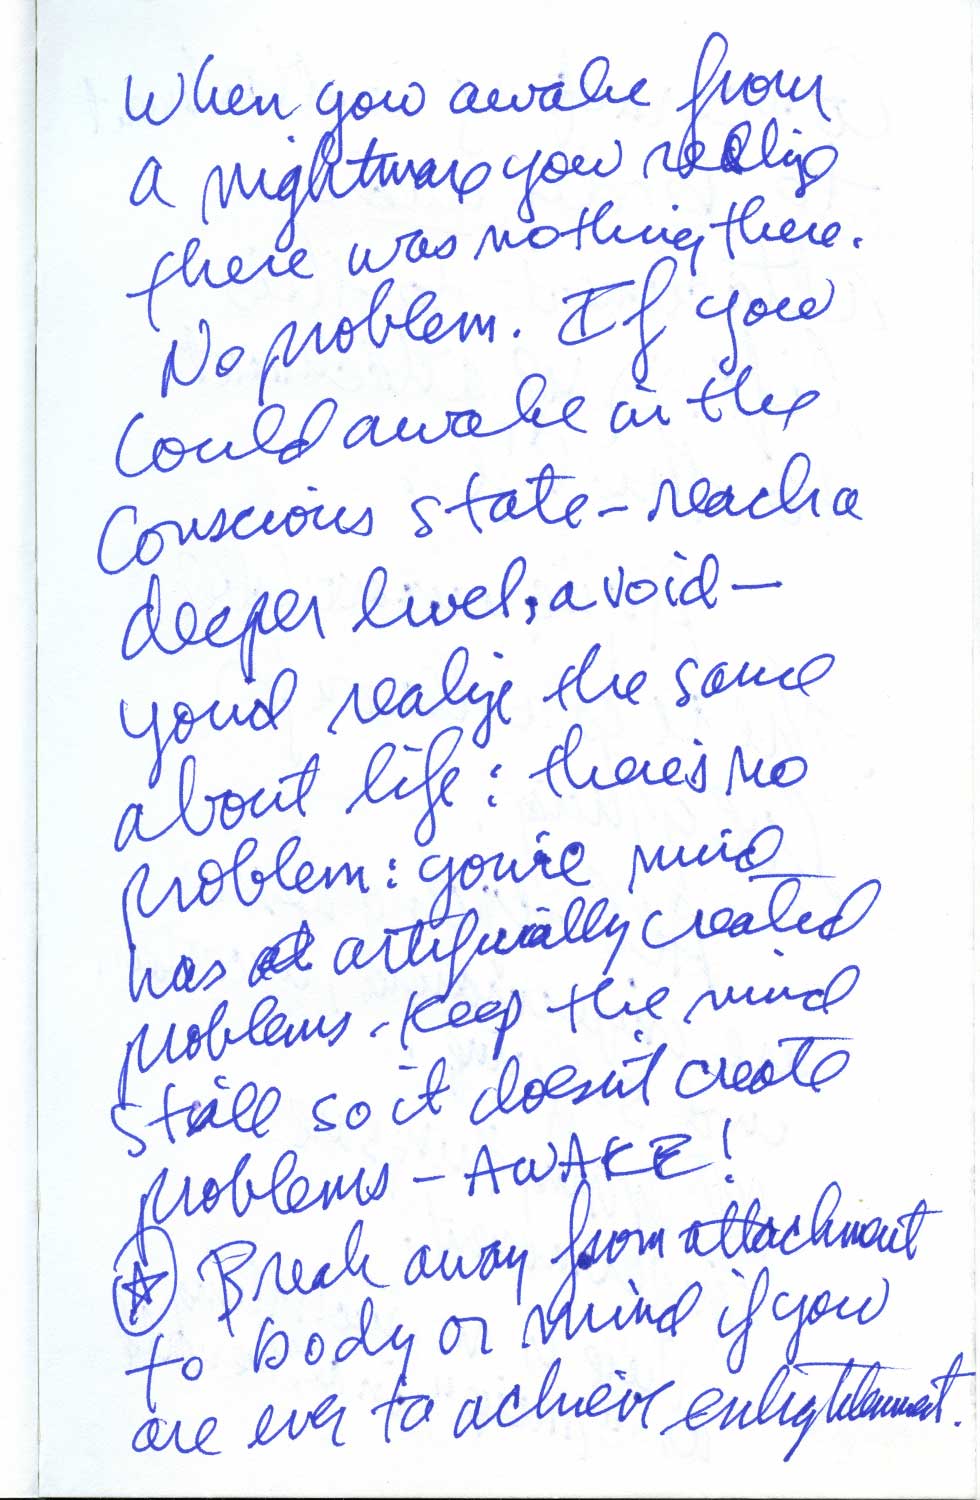 When you awake from
a nightmare you realize
there was nothing there.
No problem. If you
could awake in the
conscious state – reach a
deeper level, a void –
you'd realize the same
about life: there's no
problem: you're mind
has artificially created
problems. Keep the mind
still so it doesn't create
problems – AWAKE!
☆ Break away from attachment
to body or mind if you
are ever to achieve enlightenment.